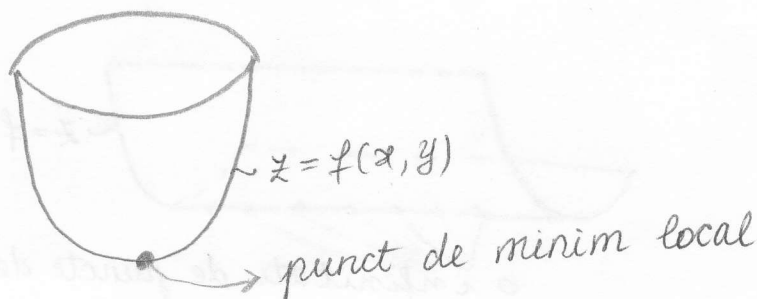 z = f(x, y)
punct de minim local